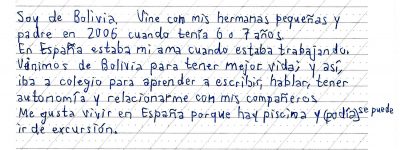 Soy de Bolivia. Vine con mis hermanas pequeñas y
padre en 2006 cuando tenía 6 o 7 años.
En España estaba mi ama cuando estaba trabajando.
Vinimos de Bolivia para tener mejor vida; y así,
iba a colegio para aprender a escribir, hablar, tener
autonomía y relacionarme con mis compañeros
Me gusta vivir en España porque hay piscina y (podía) se puede
ir de excursión.